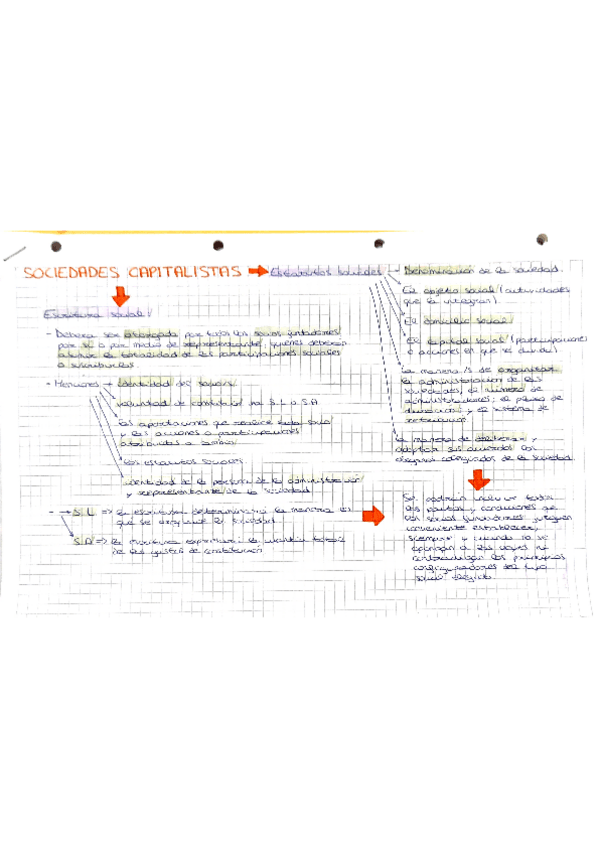 SOCIEDADES CAPITALISTAS → Estatutos sociales → Denominación de la sociedad.
El objeto social (actividades
que la integran)
El domicilio social
El capital social (participaciones
o acciones en que se divide)
La manera/s de organizar
la administración de las
sociedades, el número de
administradores, el plazo de
duración y el sistema de
retribución
La manera de deliberar y
adoptar sus acuerdos los
órganos colegiados de la sociedad
Se podrán incluir todos
los pactos y condiciones que
los socios fundadores juzguen
conveniente establecer,
siempre y cuando no se
opongan a las leyes ni
contradigan los principios
configuradores del tipo
social elegido.
Escritura social
- Deberá ser otorgada por todos los socios fundadores
por sí o por medio de representante, quienes deberán
asumir la totalidad de las participaciones sociales
o suscribirlas.
- Menciones → identidad del socio/s
voluntad de constituir una S.L o S.A
Las aportaciones que realice cada socio
y las acciones o participaciones
atribuidas a cambio
Los estatutos sociales
identidad de la persona de la administración
y representante/s de la sociedad
- → S.L => la escritura determinará la manera en
que se organice la sociedad
S.A => la escritura expresará la cuantía
de los gastos de constitución